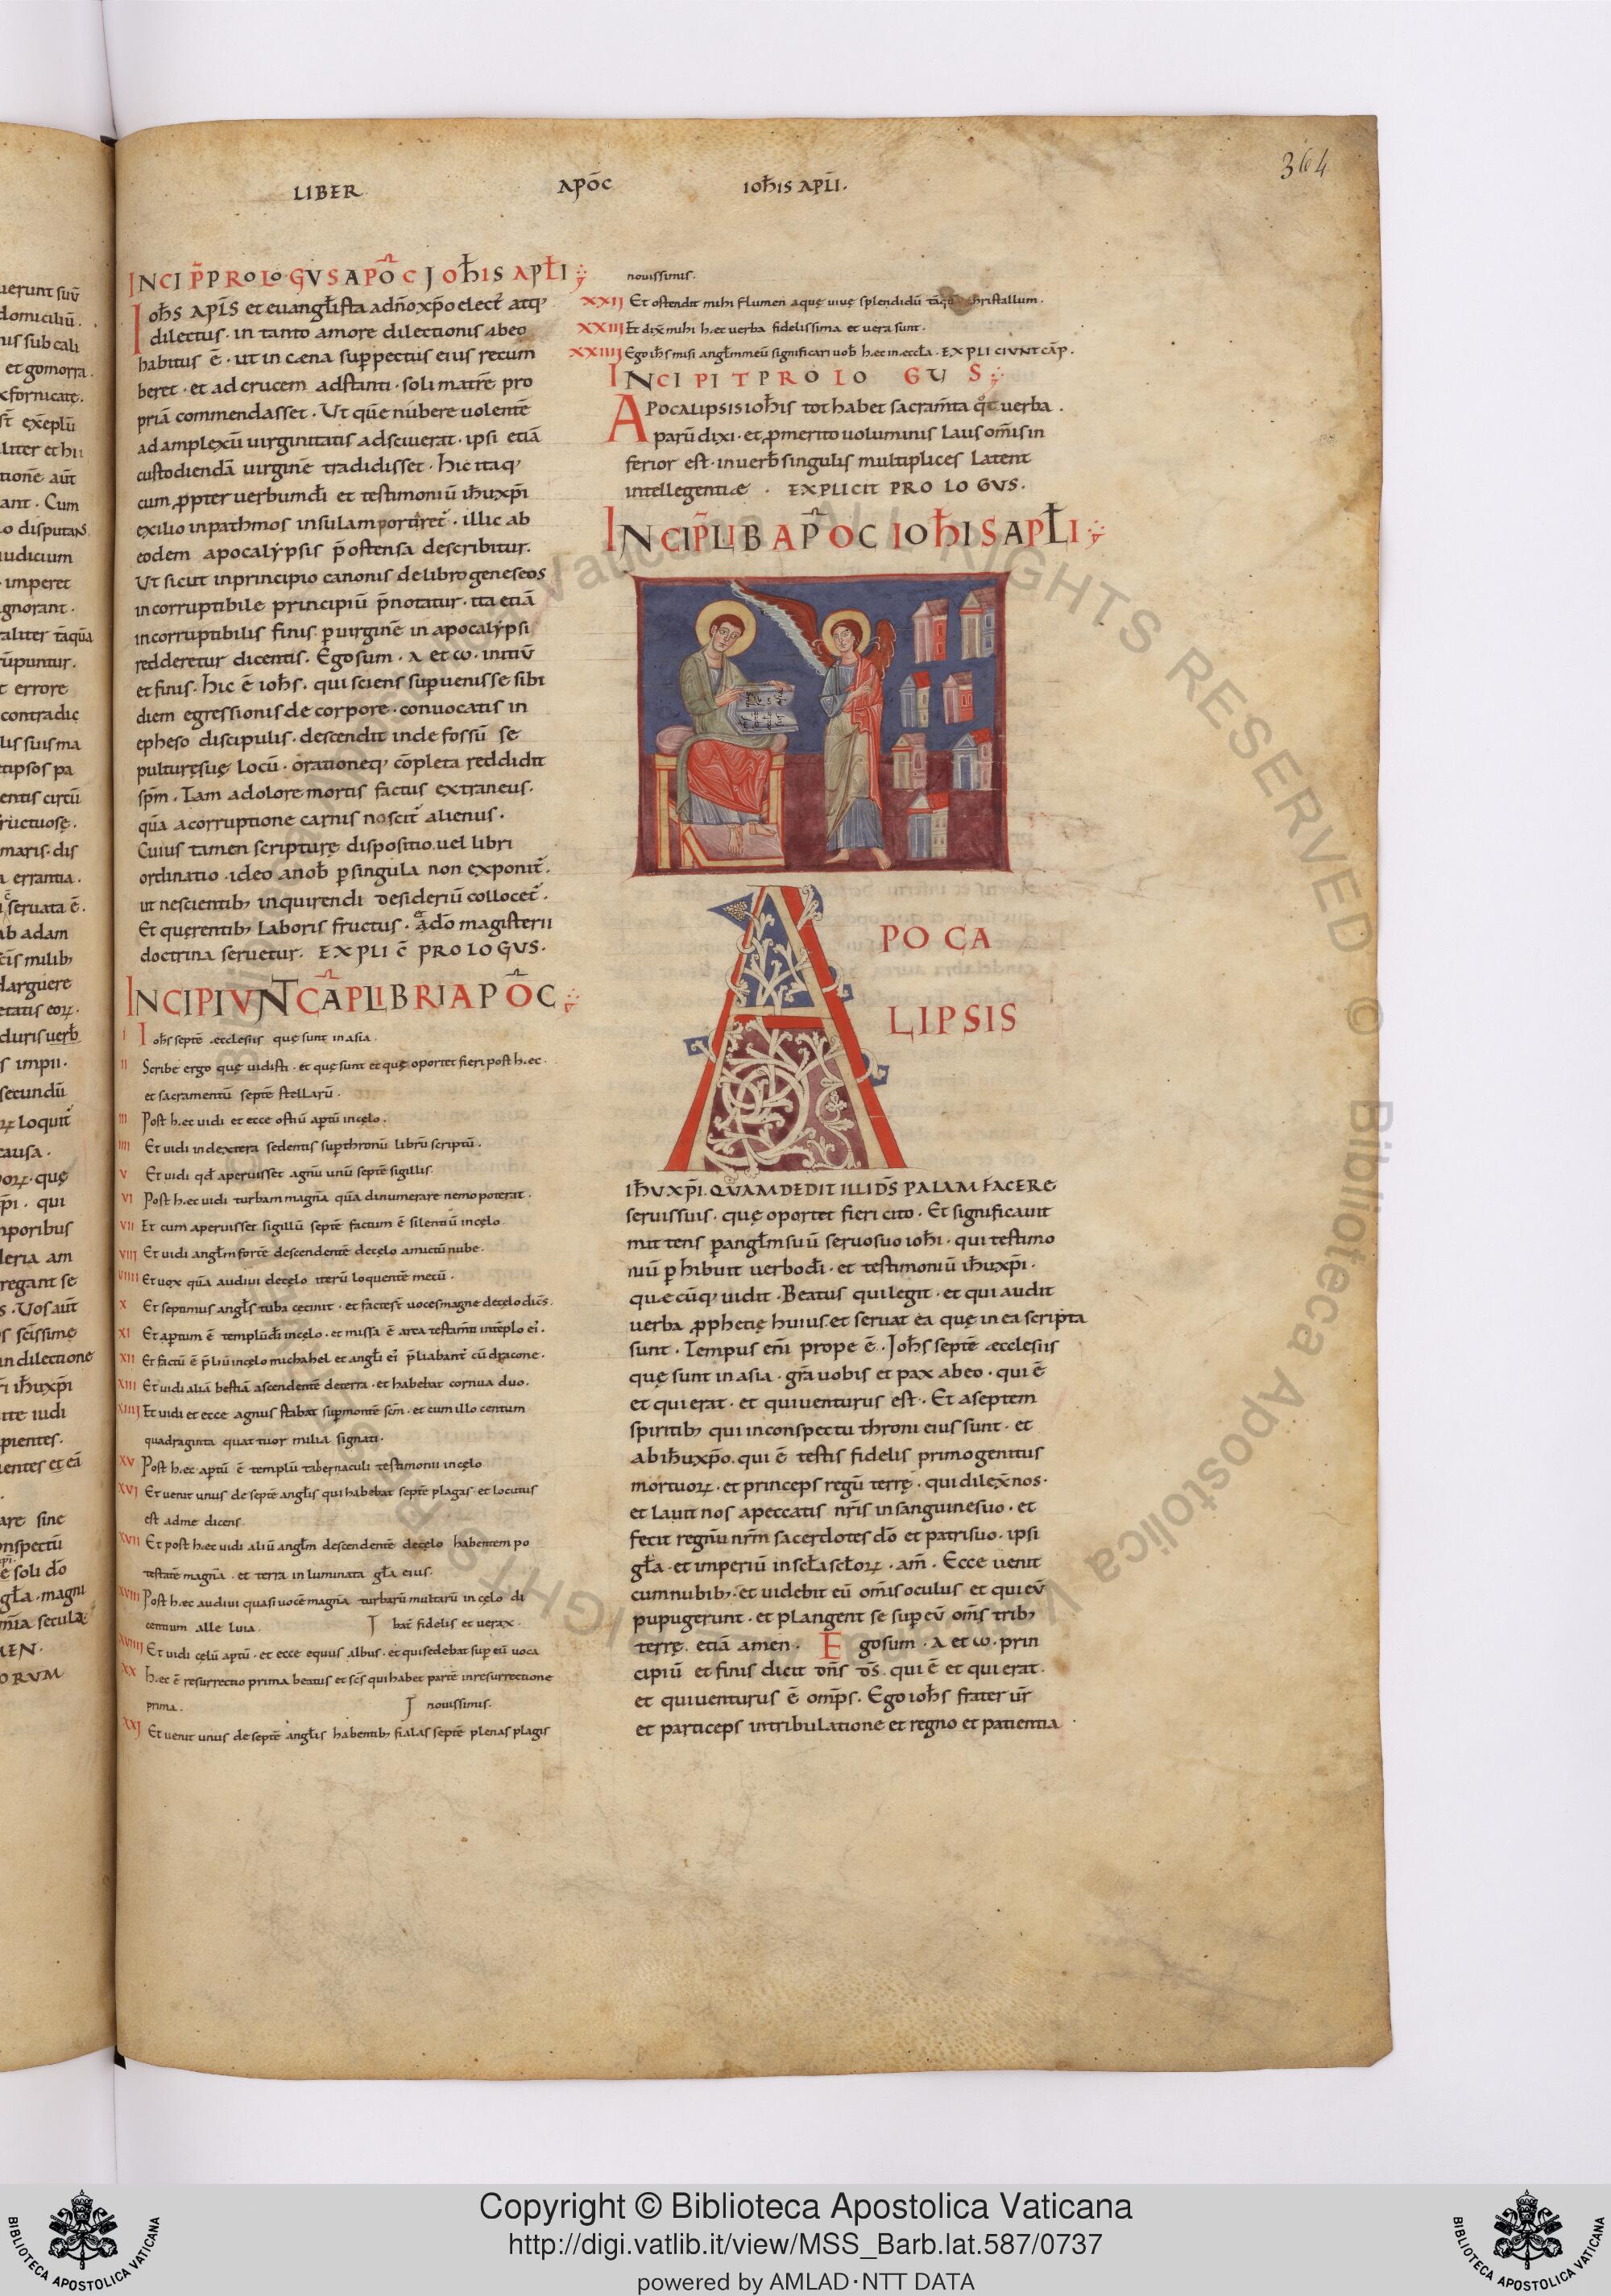 364
LIBER APOC̄ IOH̄IS APL̄I.
INCIP̄ PROLOGUS APOC̄ JOH̄IS APL̄I
Ioh̄s apl̄s et euangl̄ista adn̄o xp̄o elect̄ atq;
dilectus · in tanto amore dilectionis abeo
habitus ē · ut in cæna sup pectus eius recum
beret · et ad crucem adstanti · soli matrē pro
priā commendasset · Ut quē nubere uolentē
ad amplexū uirginitatis adsciuerat · ipsi etiā
custodiendā uirginē tradidisset · hic itaq;
cum ꝓpter uerbum dī et testimoniū ih̄u xp̄i
exilio in pathmos insulam portaret̄ · illic ab
eodem apocalypsis p̄ostensa describitur.
Ut sicut in principio canonis de libro geneseos
incorruptibile principiū p̄notatur · ita etiā
incorruptibilis finis p uirginē in apocalypsi
redderetur dicentis. Ego sum · λ et ω · initiū
et finis. hic ē ioh̄s · qui sciens sup uenisse sibi
diem egressionis de corpore · conuocatis in
epheso discipulis · descendit in defossū se
pulturę suę locū · orationeq; cōpleta reddidit
sp̄m. Tam a dolore mortis factus extraneus.
quā a corruptione carnis noscit̄ alienus ·
Cuius tamen scripturę dispositio. uel libri
ordinatio · ideo anob̄ p singula non exponit̄.
ut nescientib; inquirendi desideriū collocet̄.
Et querentib; laboris fructus · & d̄o magisterii
doctrina seruetur. EXPLIC̄ PROLOGUS.
INCIPIUNT CAP̄ LIBRI APOC̄
I Ioh̄s septē æcclesiis quę sunt in asia.
II Scribe ergo quę uidisti · et quę sunt et quę oportet fieri post hęc.
et sacramentū septē stellarū.
III Post hęc uidi et ecce ostiū aptū in cęlo.
IIII Et uidi in dextera sedentis sup thronū librū scriptū.
V Et uidi qd̄ aperuisset agnū unū septē sigillis.
VI Post hęc uidi turbam magnā quā dinumerare nemo poterat.
VII Et cum aperuisset sigillū septē factum ē silentiū in cęlo.
VIII Et uidi angl̄m fortē descendentē de cęlo amictū nube.
VIIII Et uox quā audiui de cęlo iterū loquentē mecū.
X Et septimus angl̄s tuba cęcinit · et factę st̄ uoces magne de cęlo dic̄s.
XI Et aptum ē templū dī in cęlo · et missa ē area testam̄ti in tēplo ei̓.
XII Et fictū ē p̄liū in cęlo michahel et angl̄i ei̓ p̄liabant̄ cū dracone.
XIII Et uidi aliā bestiā ascendentē de terra · et habebat cornua duo.
XIIII Et uidi et ecce agnus stabat sup montē sc̄m · et cum illo centum
quadraginta quattuor milia signati.
XV Post hęc aptū ē templū tabernaculi testimonii in cęlo
XVI Et uenit unus de septē angl̄is qui habebat septē plagas · et locutus
est ad me dicens.
XVII Et post hęc uidi aliū angl̄m descendentē de cęlo habentem po
testatē magnā · et terra inluminata gl̄a eius.
XVIII Post hęc audiui quasi uocē magnā turbarū multarū in cęlo di
centium alleluia. bat̄ fidelis et uerax.
XVIIII Et uidi cęlū aptū · et ecce equus albus · et qui sedebat sup eū uoca
XX Hęc ē resurrectio prima beatus et sc̄s qui habet partē in resurrectione
prima. nouissimus.
XXI Et uenit unus de septē angl̄is habentib; fialas septē plenas plagis
nouissimis.
XXII Et ostendit mihi flumen aquę uiuę splendidū tāquā christallum.
XXIII Et dix̄ mihi hęc uerba fidelissima et uera sunt.
XXIIII Ego ih̄s misi angl̄m meū significari uob̄ hęc in eccl̄a · EXPLICIUNT CAP̄.
INCIPIT PROLOGUS
APOCALIPSIS ioh̄is tot habet sacram̄ta qͦt uerba.
parū dixi · et ꝓ merito uoluminis laus om̄is in
ferior est · in uerb̄ singulis multiplices latent
intellegentiæ. EXPLICIT PROLOGUS.
INCIP̄ LIB APOC̄ IOH̄IS APL̄I
A
POCA
LIPSIS
IH̄U XP̄I. QUAM DEDIT ILLI D̄S PALAM FACERE
seruis suis · quę oportet fieri cito · Et significauit
mittens p angl̄m suū seruo suo ioh̄i · qui testimo
niū phibuit uerbo dī · et testimoniū ih̄u xp̄i.
quæcūq; uidit · Beatus qui legit · et qui audit
uerba ꝓphetię huius. et seruat ea quę in ea scripta
sunt · Tempus en̄i prope ē. Joh̄s septē æcclesiis
quę sunt in asia · gr̄a uobis et pax abeo · qui ē
et qui erat · et qui uenturus est · Et a septem
spiritib; qui in conspectu throni eius sunt · et
ab ih̄u xp̄o. qui ē testis fidelis primogenitus
mortuoꝝ · et princeps regū terrę · qui dilex̄ nos ·
et lauit nos a peccatis nr̄is in sanguine suo · et
fecit regnū nr̄m sacerdotes d̄o et patri suo · ipsi
gl̄a · et imperiū in scl̄a scl̄oꝝ · am̄ · Ecce uenit
cum nubib; · et uidebit eū om̄is oculus et qui eū
pupugerunt · et plangent se sup eū om̄s trib;
terrę. etiā amen. Ego sum · λ et ω · prin
cipiū et finis dicit dn̄s d̄s. qui ē et qui erat.
et qui uenturus ē om̄ps. Ego ioh̄s frater ur̄
et particeps in tribulatione et regno et patientia
Copyright © Biblioteca Apostolica Vaticana
http://digi.vatlib.it/view/MSS_Barb.lat.587/0737
powered by AMLAD·NTT DATA